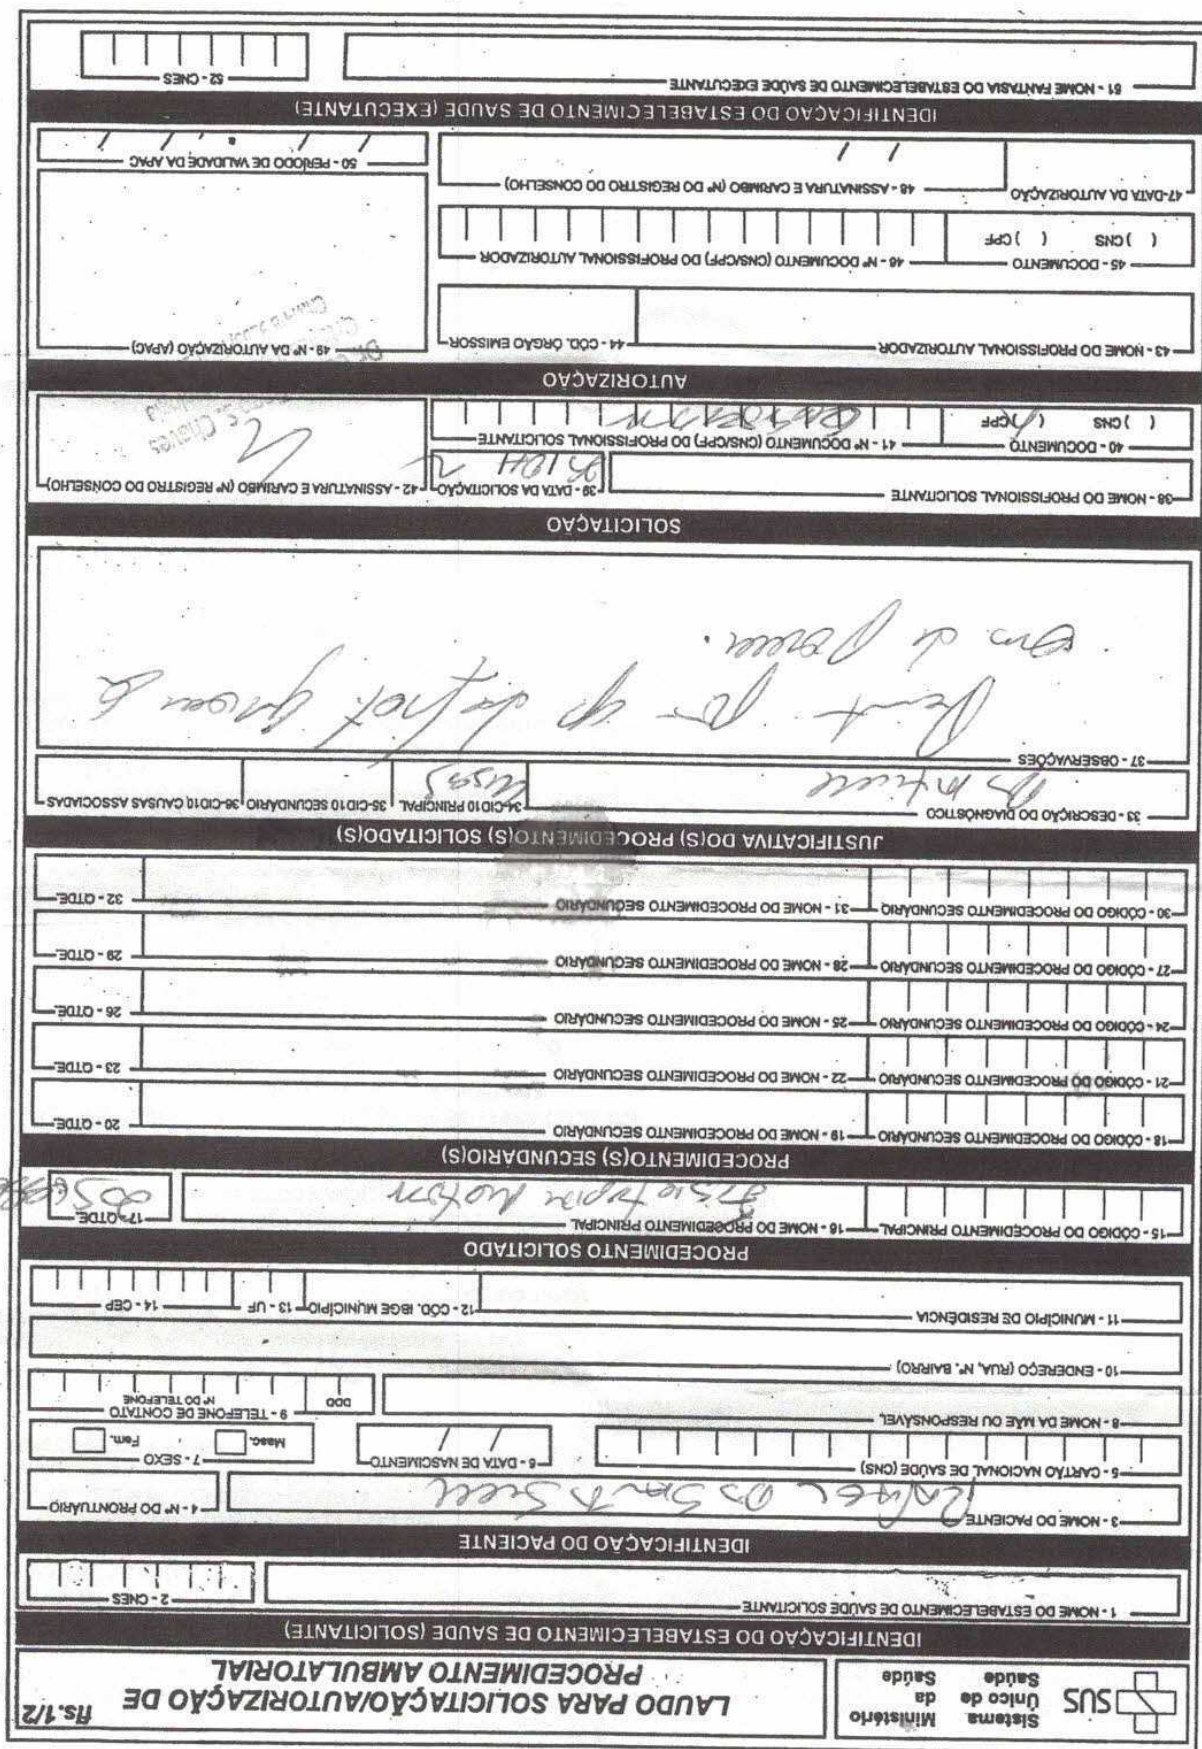 SUS
Sistema Único de Saúde
Ministério da Saúde
LAUDO PARA SOLICITAÇÃO/AUTORIZAÇÃO DE PROCEDIMENTO AMBULATORIAL
fls.1/2
IDENTIFICAÇÃO DO ESTABELECIMENTO DE SAÚDE (SOLICITANTE)
1 - NOME DO ESTABELECIMENTO DE SAÚDE SOLICITANTE
2 - CNES
IDENTIFICAÇÃO DO PACIENTE
3 - NOME DO PACIENTE
4 - Nº DO PRONTUÁRIO
5 - CARTÃO NACIONAL DE SAÚDE (CNS)
6 - DATA DE NASCIMENTO
/ /
7 - SEXO
Masc.
Fem.
8 - NOME DA MÃE OU RESPONSÁVEL
9 - TELEFONE DE CONTATO
DDD
Nº DO TELEFONE
10 - ENDEREÇO (RUA, Nº, BAIRRO)
11 - MUNICÍPIO DE RESIDÊNCIA
12 - CÓD. IBGE MUNICÍPIO
13 - UF
14 - CEP
PROCEDIMENTO SOLICITADO
15 - CÓDIGO DO PROCEDIMENTO PRINCIPAL
16 - NOME DO PROCEDIMENTO PRINCIPAL
17- QTDE.
Fisioterapia motora
PROCEDIMENTO(S) SECUNDÁRIO(S)
18 - CÓDIGO DO PROCEDIMENTO SECUNDÁRIO
19 - NOME DO PROCEDIMENTO SECUNDÁRIO
20 - QTDE.
21 - CÓDIGO DO PROCEDIMENTO SECUNDÁRIO
22 - NOME DO PROCEDIMENTO SECUNDÁRIO
23 - QTDE.
24 - CÓDIGO DO PROCEDIMENTO SECUNDÁRIO
25 - NOME DO PROCEDIMENTO SECUNDÁRIO
26 - QTDE.
27 - CÓDIGO DO PROCEDIMENTO SECUNDÁRIO
28 - NOME DO PROCEDIMENTO SECUNDÁRIO
29 - QTDE.
30 - CÓDIGO DO PROCEDIMENTO SECUNDÁRIO
31 - NOME DO PROCEDIMENTO SECUNDÁRIO
32 - QTDE.
JUSTIFICATIVA DO(S) PROCEDIMENTO(S) SOLICITADO(S)
33 - DESCRIÇÃO DO DIAGNÓSTICO
34-CID10 PRINCIPAL
35-CID10 SECUNDÁRIO
36-CID10 CAUSAS ASSOCIADAS
37 - OBSERVAÇÕES
SOLICITAÇÃO
38 - NOME DO PROFISSIONAL SOLICITANTE
39 - DATA DA SOLICITAÇÃO
42 - ASSINATURA E CARIMBO (Nº REGISTRO DO CONSELHO)
40 - DOCUMENTO
( ) CNS ( ) CPF
41 - Nº DOCUMENTO (CNS/CPF) DO PROFISSIONAL SOLICITANTE
S. Chaves
AUTORIZAÇÃO
43 - NOME DO PROFISSIONAL AUTORIZADOR
44 - CÓD. ÓRGÃO EMISSOR
49 - Nº DA AUTORIZAÇÃO (APAC)
45 - DOCUMENTO
( ) CNS ( ) CPF
46 - Nº DOCUMENTO (CNS/CPF) DO PROFISSIONAL AUTORIZADOR
47-DATA DA AUTORIZAÇÃO
48 - ASSINATURA E CARIMBO (Nº DO REGISTRO DO CONSELHO)
/ /
50 - PERÍODO DE VALIDADE DA APAC
/ / / /
IDENTIFICAÇÃO DO ESTABELECIMENTO DE SAÚDE (EXECUTANTE)
51 - NOME FANTASIA DO ESTABELECIMENTO DE SAÚDE EXECUTANTE
52 - CNES